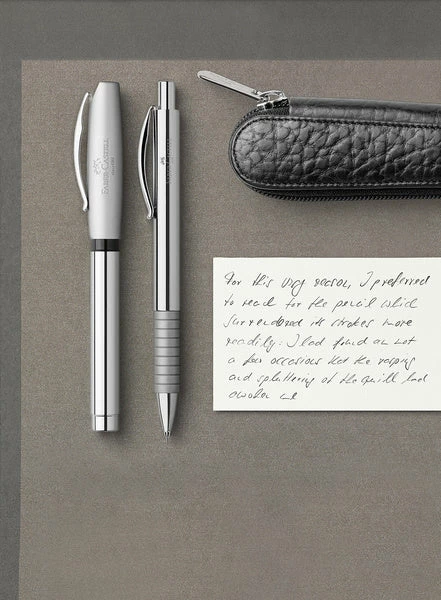 FABER-CASTELL
For this very reason, I preferred
to reach for the pencil which
surrendered its strokes more
readily: I had found on not
a few occasions that the rasping
and spluttering of the quill had
awoken me